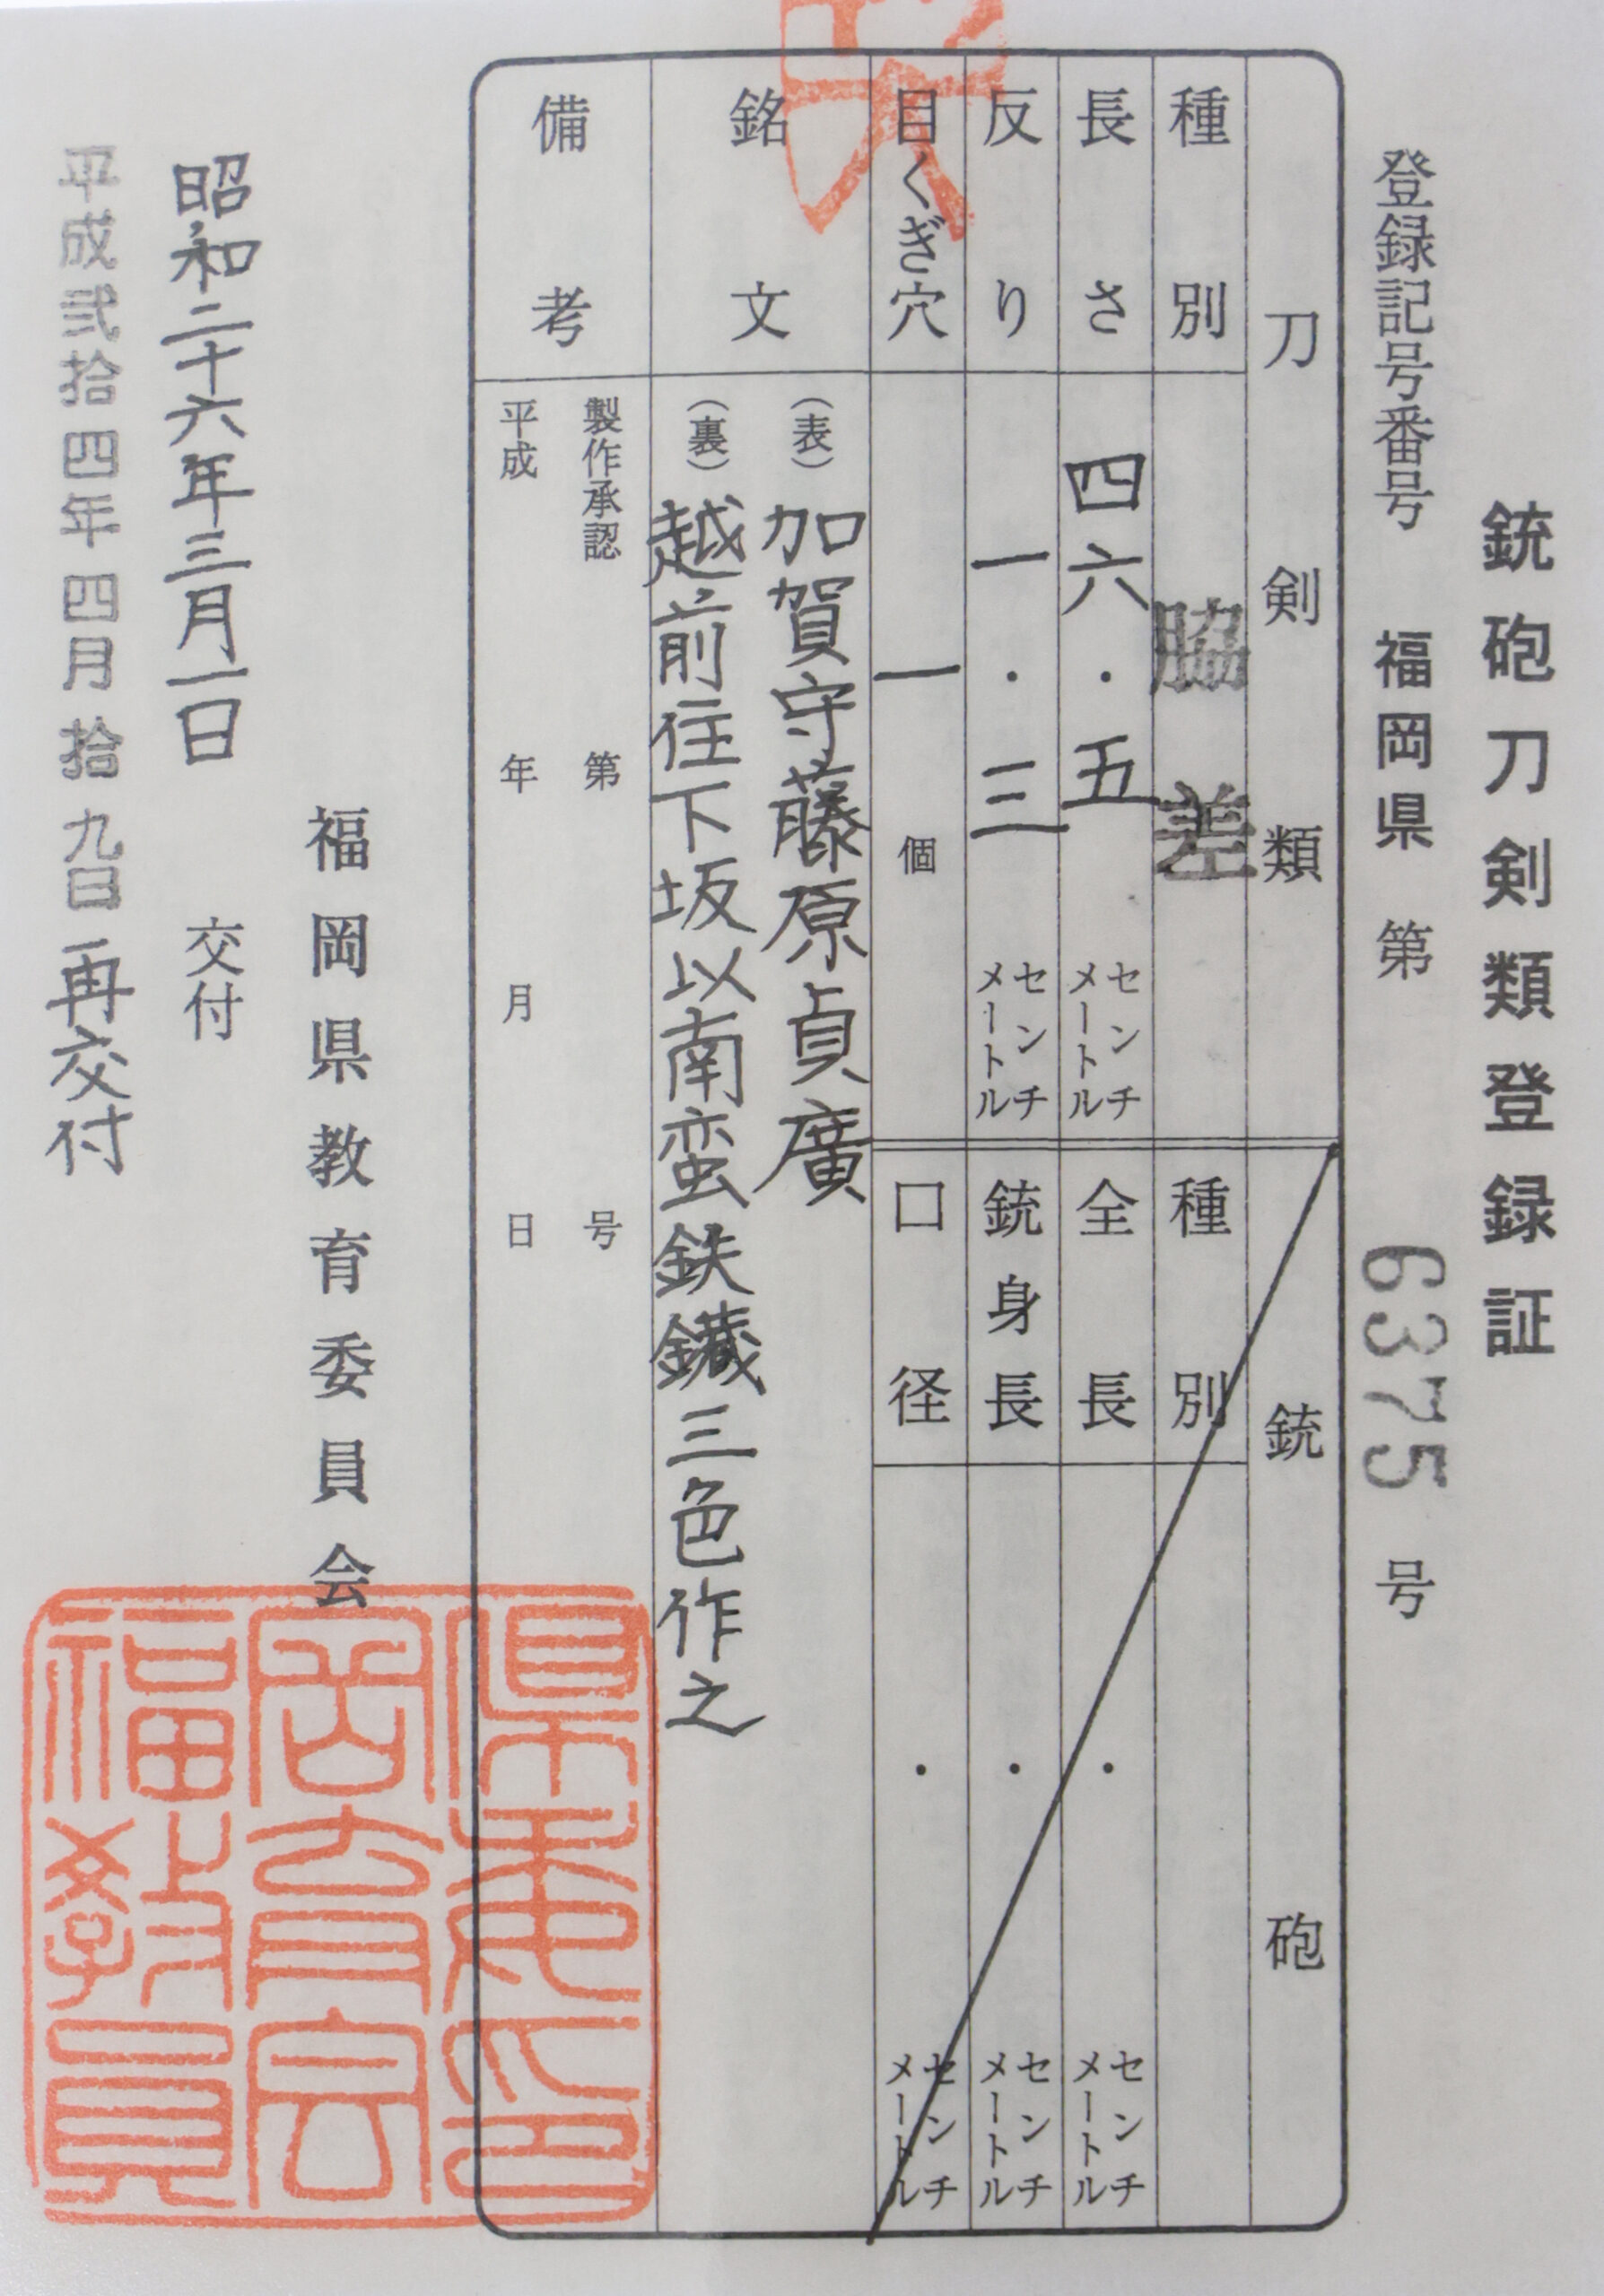 銃砲刀剣類登録証
登録記号番号 福岡県 第 6375 号
刀剣類
種別 脇差
長さ 四六・五 センチメートル
反り 一・三 センチメートル
目くぎ穴 一個
銃砲
種別
全長 ・ センチメートル
銃身長 ・ センチメートル
口径 ・ センチメートル
銘文
(表) 加賀守藤原貞廣
(裏) 越前住下坂以南蛮鉄鐵三色作之
備考
製作承認 第 号
平成 年 月 日
福岡県教育委員会
昭和二十六年三月一日 交付
平成弐拾四年四月拾九日再交付
県委印
岡育会
福教員